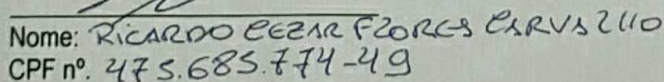 Nome: RICARDO CEZAR FLORES CARVALHO
CPF nº. 475.685.774-49